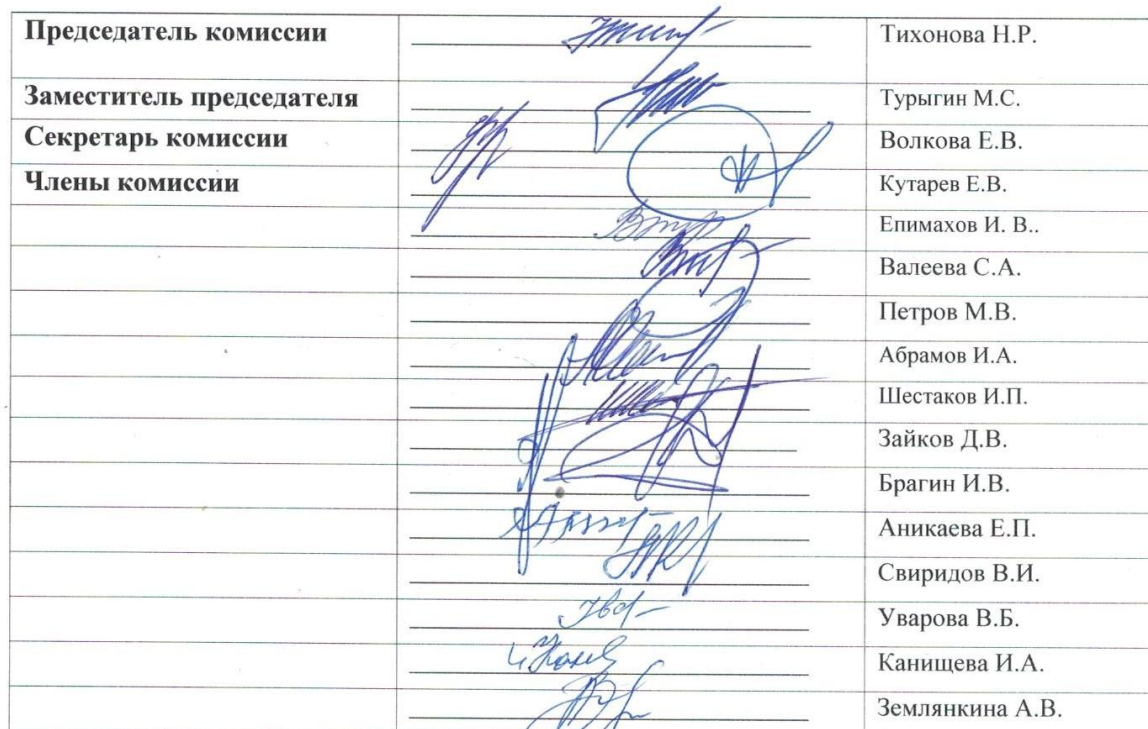 Председатель комиссии Тихонова Н.Р.
Заместитель председателя Турыгин М.С.
Секретарь комиссии Волкова Е.В.
Члены комиссии Кутарев Е.В.
Епимахов И. В..
Валеева С.А.
Петров М.В.
Абрамов И.А.
Шестаков И.П.
Зайков Д.В.
Брагин И.В.
Аникаева Е.П.
Свиридов В.И.
Уварова В.Б.
Канищева И.А.
Землянкина А.В.